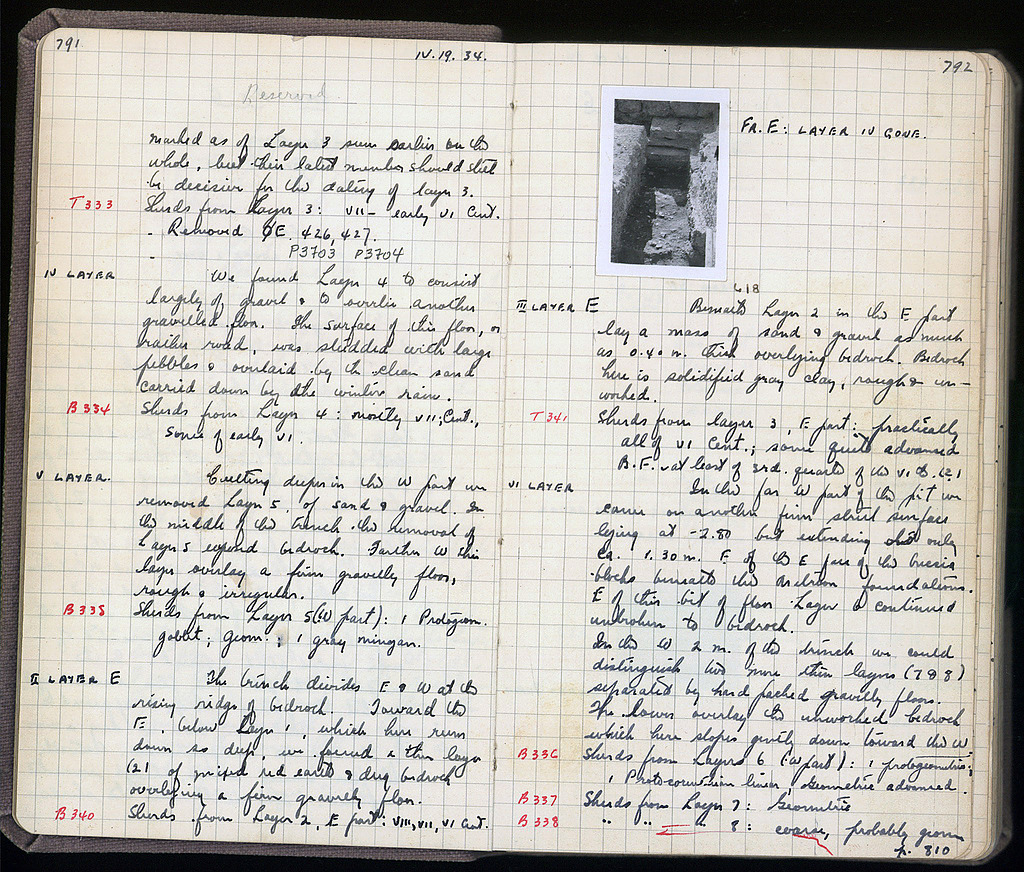 791
IV. 19. 34.
Reserved
marked as of Layer 3 seem earlier on the
whole, but their latest member should still
be decisive for the dating of layer 3.
T 333 Sherds from Layer 3: VII – early VI Cent.
Removed E. 426, 427.
P3703 P3704
IV LAYER We found Layer 4 to consist
largely of gravel & to overlie another
gravelled floor. The surface of this floor, or
rather road, was studded with large
pebbles & overlaid by the clean sand
carried down by the winter rain.
B 334 Sherds from Layer 4: mostly VII Cent.,
some of early VI.
V LAYER. Cutting deeper in the W part we
removed Layer 5, of sand & gravel. In
the middle of the trench the removal of
Layer 5 exposed bedrock. Farther W this
layer overlay a firm gravelly floor,
rough & irregular.
B 335 Sherds from Layer 5 (W part): 1 Protogeom.
goblet; Geom.; 1 gray minyan.
II LAYER E The trench divides E & W at the
rising ridge of bedrock. Toward the
E, below Layer 1, which here runs
down so deep, we found a thin layer
(2) of mixed red earth & dug bedrock
overlying a firm gravelly floor.
B 340 Sherds from Layer 2, E part: VIII, VII, VI Cent.
792
FR. E: LAYER IV GONE.
618
III LAYER E Beneath Layer 2 in the E part
lay a mass of sand & gravel as much
as 0.40 m. thick overlying bedrock. Bedrock
here is solidified gray clay, rough & un-
worked.
T 341 Sherds from layer 3, E part: practically
all of VI Cent.; some quite advanced
B.F. at least of 3rd. quarter of the VI
VI LAYER In the far W part of the pit we
came on another firm street surface
lying at -2.80 but extending only
ca. 1.30 m. E of the E face of the breccia
blocks beneath the Metroon foundations.
E of this bit of floor Layer 6 continued
unbroken to bedrock.
In the W 2 m. of the trench we could
distinguish two more thin layers (7 & 8)
separated by hard packed gravelly floors.
The lower overlay the unworked bedrock
which here slopes gently down toward the W.
B 336 Sherds from Layer 6 (W part): 1 protogeometric;
1 Proto-corinthian linear, Geometric advanced.
B 337 Sherds from Layer 7: Geometric
B 338 " " " 8: coarse, probably geom
p. 810